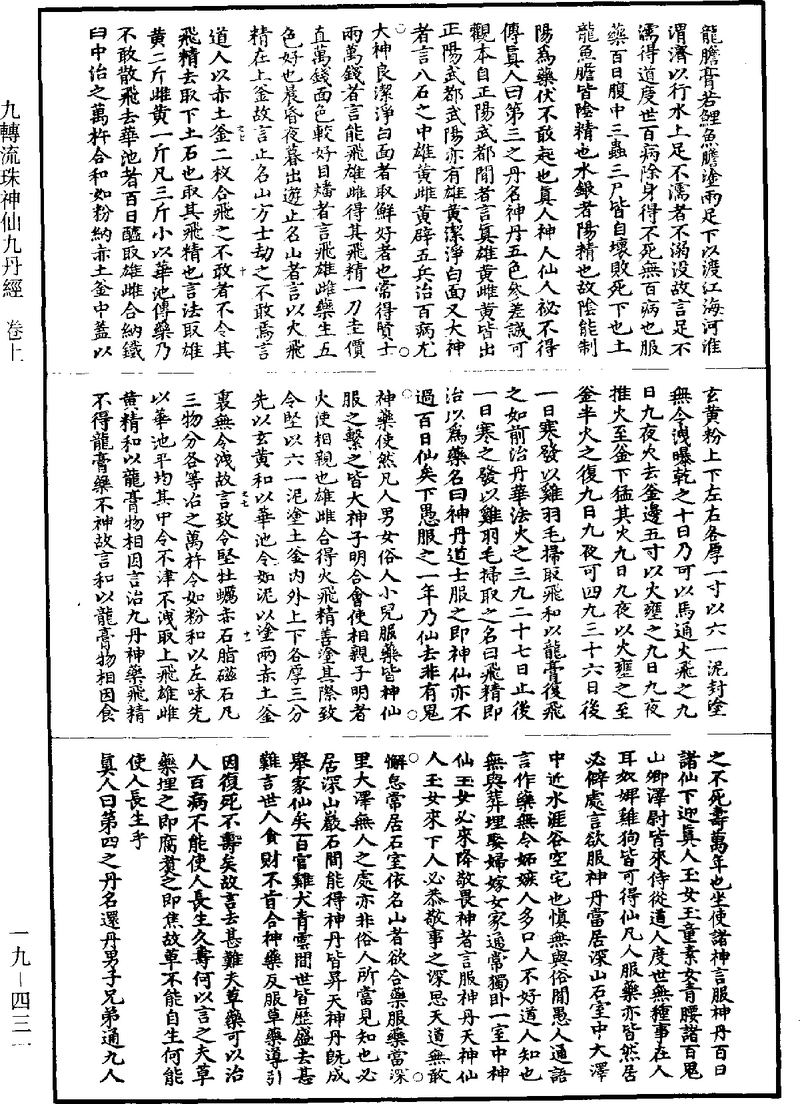 龍膽膏若鯉魚膽塗兩足下以渡江海河淮
渭濟以行水上足不濡者不溺沒故言足不
濡得道度世百病除身得不死無百病也服
藥百日腹中三蟲三尸皆自壞敗死下也土
龍魚膽皆陰精也水銀者陽精也故陰能制
陽爲藥伏不敢起也眞人神人仙人祕不得
傳眞人曰第三之丹名神丹五色參差誠可
觀本自正陽武都聞者言眞雄黃雌黃皆出
正陽武都武陽亦有雄黃潔淨白面又大神
者言八石之中雄黃雌黃辟五兵治百病尤
大神良潔淨白面者取鮮好者也當得賢士
兩萬錢者言能飛雄雌得其飛精一刀圭價
直萬錢面色較好目燔者言飛雄雌藥生五
色好也晨昏夜暮出遊止名山者言以火飛
精在上釜故言止名山方士劫之不敢焉言
道人以赤土釜二枚合飛之不敢者不令其
飛精去取下土石也取其飛精也言法取雄
黃二斤雌黃一斤凡三斤小以華池傅藥乃
不敢散飛去華池者百日醯取雄雌合納鐵
臼中治之萬杵合和如粉納赤土釜中蓋以
玄黃粉上下左右各厚一寸以六一泥封塗
無令洩曝乾之十日乃可以馬通火飛之九
日九夜火去釜邊五寸以火壅之九日九夜
推火至釜下猛其火九日九夜以火壅之至
釜半火之復九日九夜可四九三十六日後
一日寒發以雞羽毛掃取飛和以龍膏復飛
之如前治丹華法火之三九二十七日止後
一日寒之發以雞羽毛掃取之名曰飛精即
治以爲藥名曰神丹道士服之即神仙亦不
過百日仙矣下愚服之一年乃仙去非有鬼
神藥使然凡人男女俗人小兒服藥皆神仙
服之繫之皆大神子明合會使相親子明者
火使相親也雄雌合得火飛精善塗其際致
令堅以六一泥塗土釜內外上下各厚三分
先以玄黃和以華池令如泥以塗兩赤土釜
裏無令洩故言致令堅牡蠣赤石脂磁石凡
三物分各等治之萬杵令如粉和以左味先
以華池平均其中令不津不洩取上飛雄雌
黃精和以龍膏物相因言治九丹神藥飛精
不得龍膏藥不神故言和以龍膏物相因食
之不死壽萬年也坐使諸神言服神丹百日
諸仙下迎眞人玉女玉童素女青腰諸百鬼
山卿澤尉皆來侍從道人度世無種事在人
耳奴婢雞狗皆可得仙凡人服藥亦皆然居
必僻處言欲服神丹當居深山石室中大澤
中近水涯谷空宅也慎無與俗閒愚人通語
言作藥無令妬嫉人多口人不好道人知也
無與葬埋娶婦嫁女家通常獨卧一室中神
仙玉女必來降敬畏神者言服神丹天神仙
人玉女來下人必恭敬事之深思天道無敢
懈怠常居石室依名山者欲合藥服藥當深
里大澤無人之處亦非俗人所當見知也必
居深山巖石間能得神丹皆昇天神丹旣成
舉家仙矣百官雞犬青雲間世皆歷盛去甚
難言世人貪財不肯合神藥反服草藥導引
因復死不壽矣故言去甚難夫草藥可以治
人百病不能使人長生久壽何以言之夫草
藥埋之即腐煑之即焦故草不能自生何能
使人長生乎
眞人曰第四之丹名還丹男子兄弟通九人
九轉流珠神仙九丹經　卷上
一九－四三一